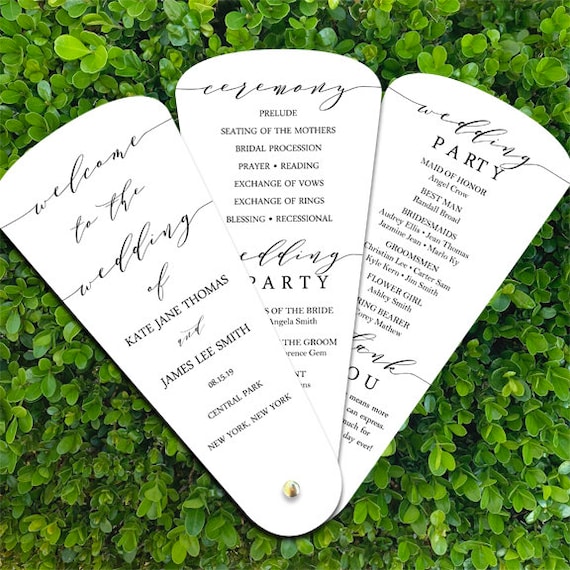 welcome
to the
wedding
of
KATE JANE THOMAS
and
JAMES LEE SMITH
08.15.19
CENTRAL PARK
NEW YORK, NEW YORK
ceremony
PRELUDE
SEATING OF THE MOTHERS
BRIDAL PROCESSION
PRAYER • READING
EXCHANGE OF VOWS
EXCHANGE OF RINGS
BLESSING • RECESSIONAL
wedding
PARTY
OF THE BRIDE
Angela Smith
OF THE GROOM
Gem
wedding
PARTY
MAID OF HONOR
Angel Crow
BEST MAN
Randall Broad
BRIDESMAIDS
Audrey Ellis • Jean Thomas
Jazmine Jean • Marlo Ky
GROOMSMEN
Christian Lee • Carter Sam
Kyle Kern • Jim Smith
FLOWER GIRL
Ashley Smith
BEARER
Mathew
means more
can express.
much for
day ever!